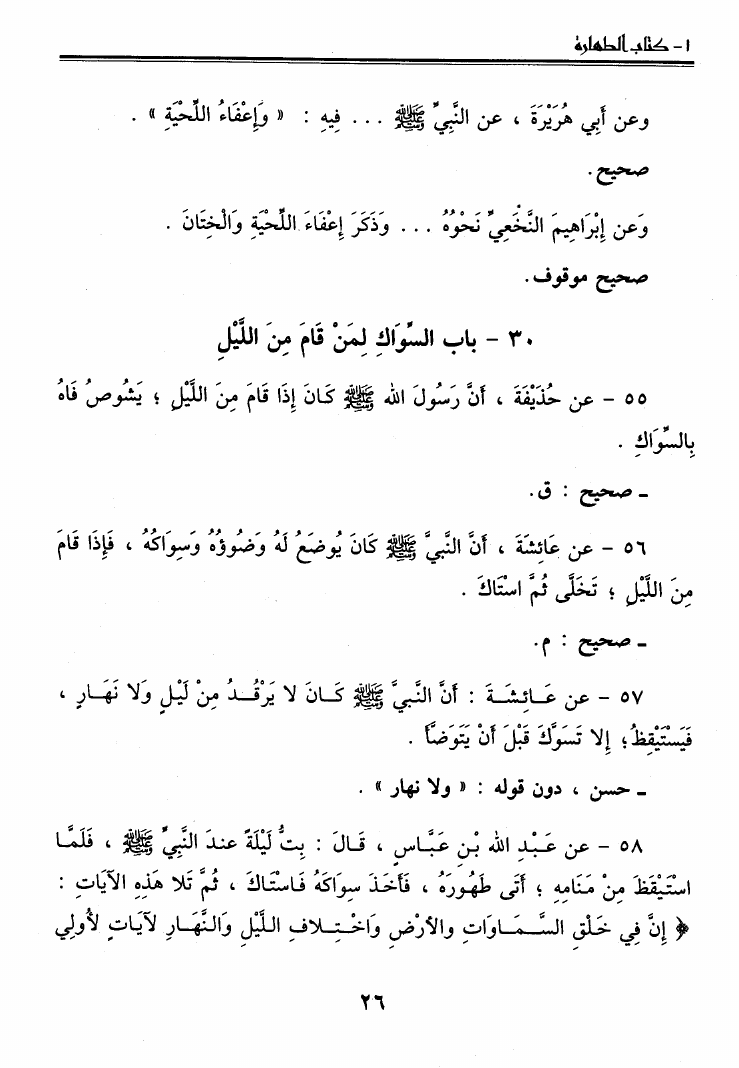 ١ - كتاب الطهارة
وعن أَبِي هُرَيْرَةَ ، عن النَّبِيِّ ﷺ ... فِيهِ : « وَإِعْفَاءُ اللِّحْيَةِ » .
صحيح.
وَعن إِبْرَاهِيمَ النَّخَعِيِّ نَحْوُهُ ... وَذَكَرَ إِعْفَاءَ اللِّحْيَةِ وَالْخِتَانَ .
صحيح موقوف.
٣٠ - باب السِّوَاكِ لِمَنْ قَامَ مِنَ اللَّيْلِ
٥٥ - عن حُذَيْفَةَ ، أَنَّ رَسُولَ الله ﷺ كَانَ إِذَا قَامَ مِنَ اللَّيْلِ ؛ يَشُوصُ فَاهُ
بِالسِّوَاكِ .
ـ صحيح : ق.
٥٦ - عن عَائِشَةَ ، أَنَّ النَّبِيَّ ﷺ كَانَ يُوضَعُ لَهُ وَضُوؤُهُ وَسِوَاكُهُ ، فَإِذَا قَامَ
مِنَ اللَّيْلِ ؛ تَخَلَّى ثُمَّ اسْتَاكَ .
ـ صحيح : م.
٥٧ - عن عَـائِشَـةَ : أَنَّ النَّبِيَّ ﷺ كَـانَ لا يَرْقُـدُ مِنْ لَيْلٍ وَلا نَهَـارٍ ،
فَيَسْتَيْقِظُ؛ إِلا تَسَوَّكَ قَبْلَ أَنْ يَتَوَضَّأَ .
ـ حسن ، دون قوله : « ولا نهار » .
٥٨ - عن عَـبْدِ الله بْنِ عَبَّاسٍ ، قَـالَ : بِتُّ لَيْلَةً عندَ النَّبِيِّ ﷺ ، فَلَمَّـا
اسْتَيْقَظَ مِنْ مَنَامِهِ ؛ أَتَى طَهُورَهُ ، فَأَخَذَ سِوَاكَهُ فَـاسْتَاكَ ، ثُمَّ تَلا هَذِهِ الآيَاتِ :
﴿ إِنَّ فِي خَلْقِ السَّـمَـاوَاتِ والأَرْضِ وَاخْتِـلافِ اللَّيْلِ وَالنَّهَـارِ لآيَاتٍ لأُولِي
٢٦